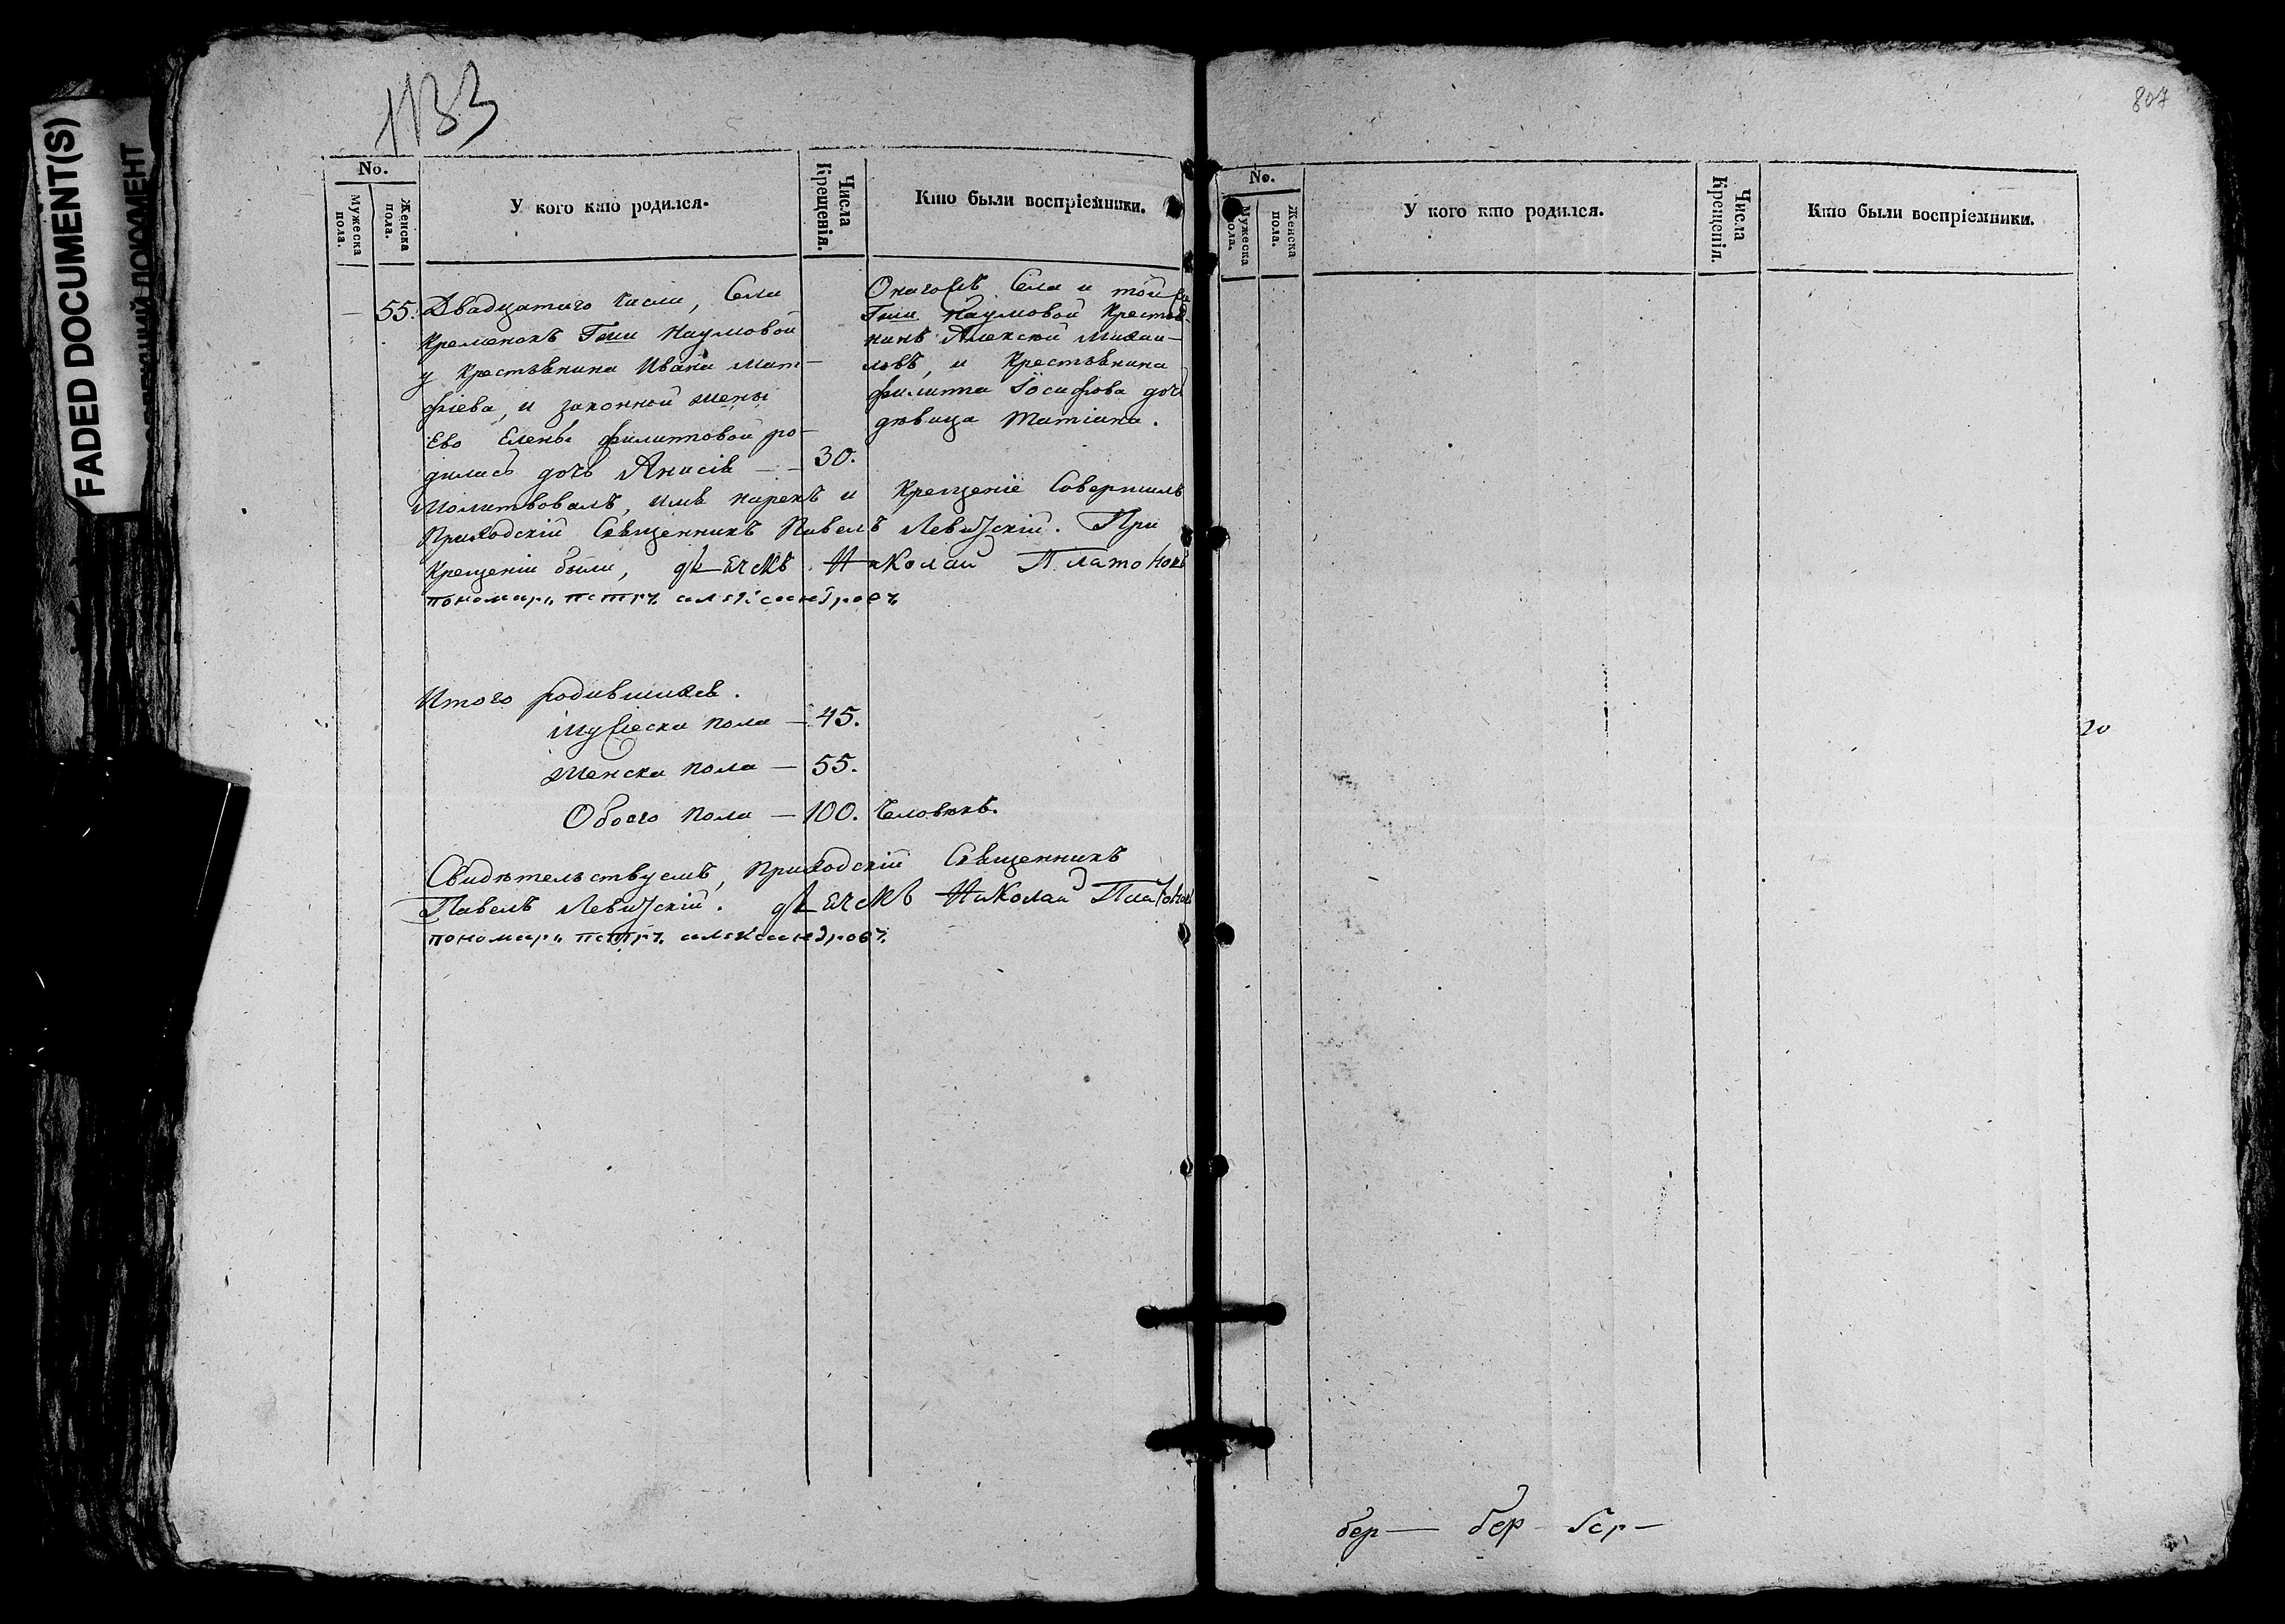 FADED DOCUMENT(S)
ДОКУМЕНТ
1133
No.
Мужеска пола.
Женска пола.
У кого кто родился.
Числа Крещенія.
Кто были воспріемники.
55. Двадцатаго числа, Села
Кременокъ Гжи Наумовой
у крестьянина Ивана Мат-
фіева, и законной жены
Ево Елены Филипповой ро-
дилась дочь Анисія — 30.
Онагожъ Села и той же
Гжи Наумовой Крестья-
нинъ Алексей Михаи-
ловъ, и Крестьянина
Филиппа Іосифова дочь
девица Татіана.
Молитвовалъ, имя нарекъ и Крещеніе Совершилъ
Приходскій Священникъ Павелъ Левитскій. При
Крещеніи были, дьячекъ Николай Платоновъ
пономарь петръ александровъ
Итого родившихся.
Мужеска пола — 45.
Женска пола — 55.
Обоего пола — 100. Человѣкъ.
Свидѣтельствуемъ, Приходскій Священникъ
Павелъ Левитскій. дьячекъ Николай Платоновъ
пономарь петръ александровъ
807
No.
Мужеска пола.
Женска пола.
У кого кто родился.
Числа Крещенія.
Кто были воспріемники.
20
бер— бер— бер—